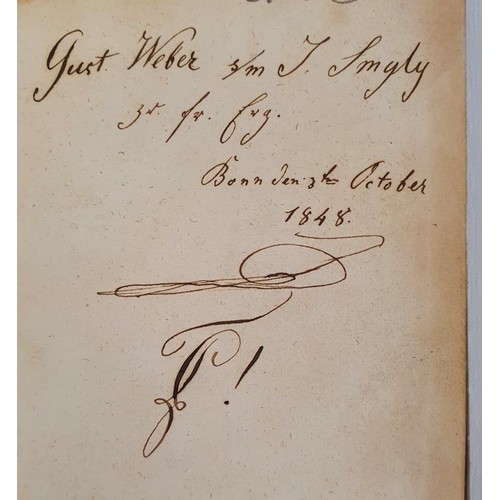 Gust. Weber s/m J. Smgly
zr. fr. Erg.
Bonn den 3th October
1848.